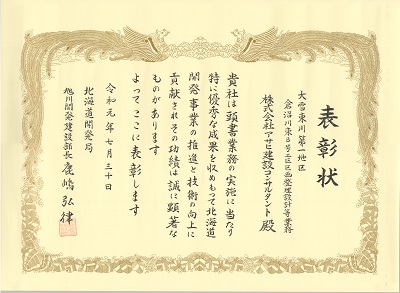 表彰状
大雪東川第一地区
倉沼川東8号工区区画整理設計等業務
株式会社アゼモ建設コンサルタント殿
貴社は頭書業務の実施に当たり
特に優秀な成果を収めもって北海道
開発事業の推進と技術の向上に
貢献されその功績は誠に顕著な
ものがあります
よってここに表彰します
令和元年七月三十日
北海道開発局
旭川開発建設部長鹿嶋弘律